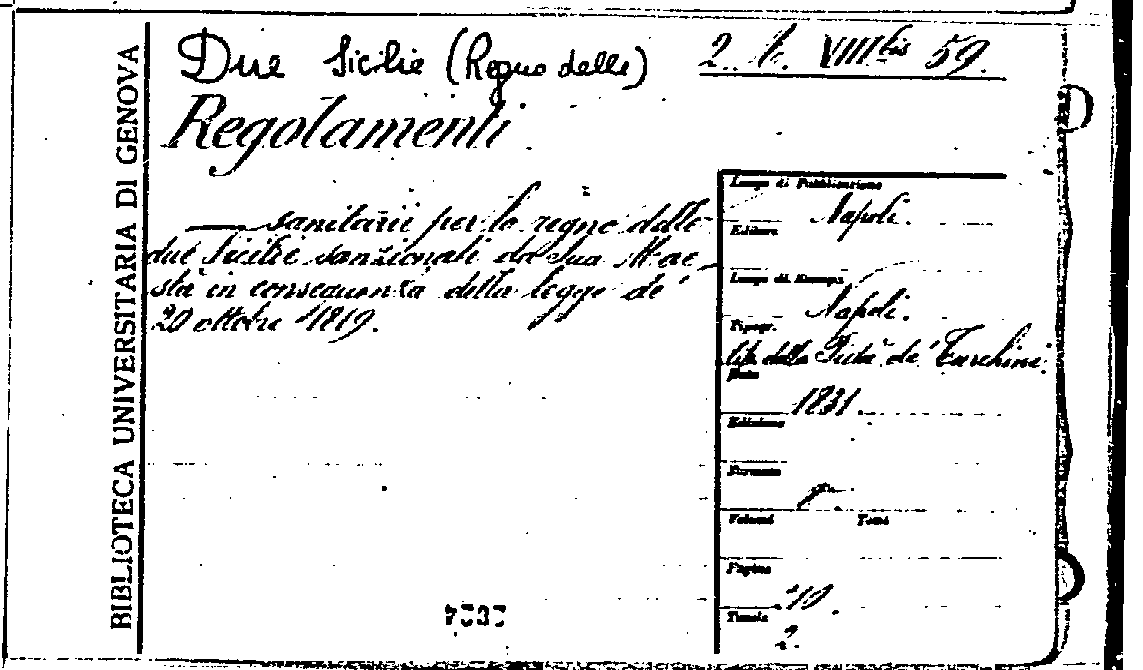 BIBLIOTECA UNIVERSITARIA DI GENOVA
Due Sicilie (Regno delle)
2. VIII bis 59.
Regolamenti
sanitarii per lo regno delle
due Sicilie sanzionati da Sua Mae
stà in conseguenza della legge de'
20 ottobre 1819.
Luogo di Pubblicazione
Napoli.
Editore
Luogo di Stampa
Napoli.
Tipogr.
tip. della Pietà de' Turchini.
Data
1831.
Edizione
Formato
Volumi Tomi
Pagine
Tavole
2.